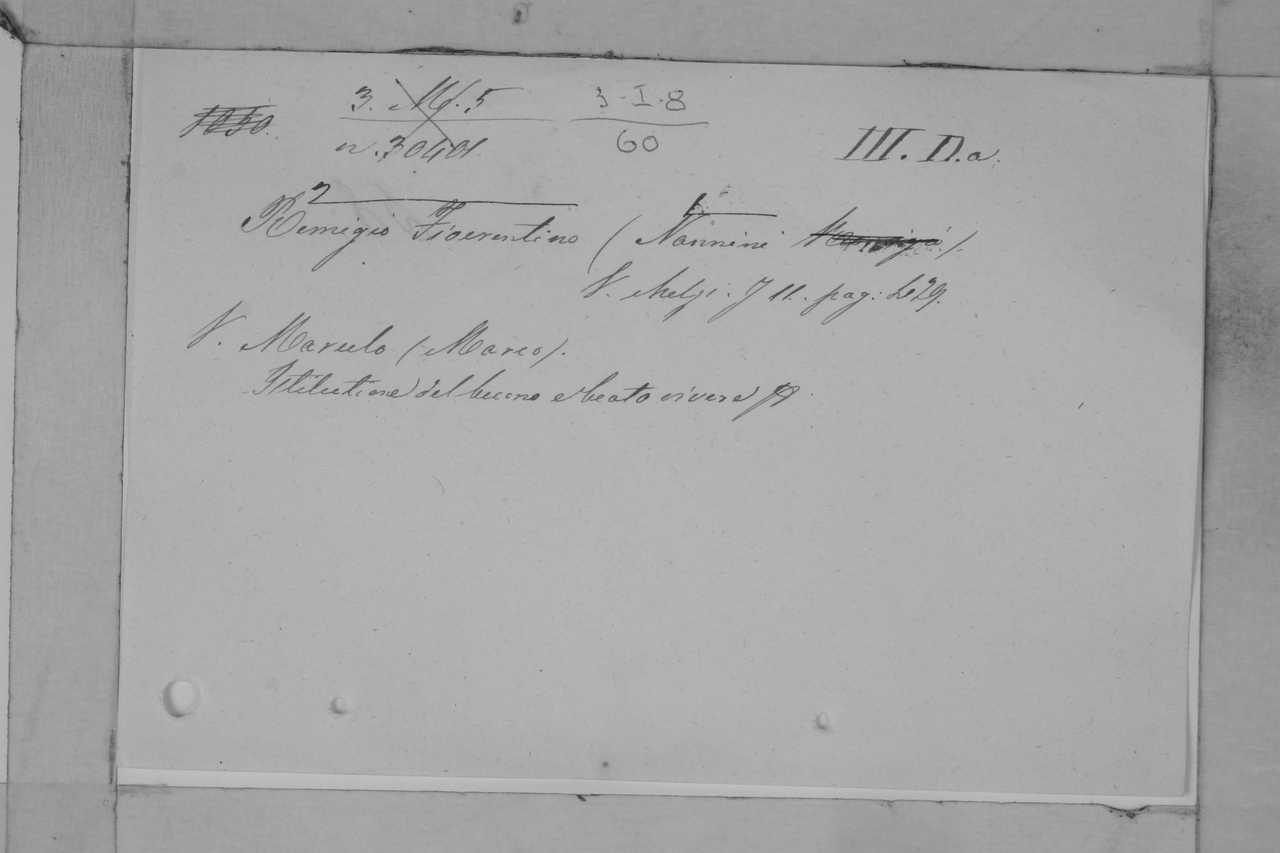 1030. 3. M. 5 3-I-8 III. D.a.
n. 3040 60
2 1
Remigio Fiorentino (Nannini Remigio).
V. Melzi. T II. pag: 429.
V. Marulo (Marco).
Istitutione del buono e beato vivere